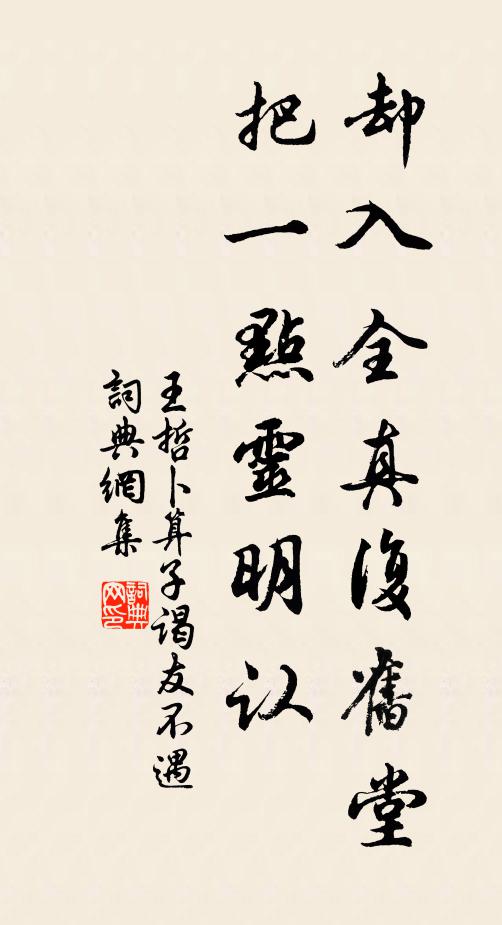 却入全真復舊堂
把一點靈明认
王哲卜算子謁友不遇
詞典網集
詞典网印